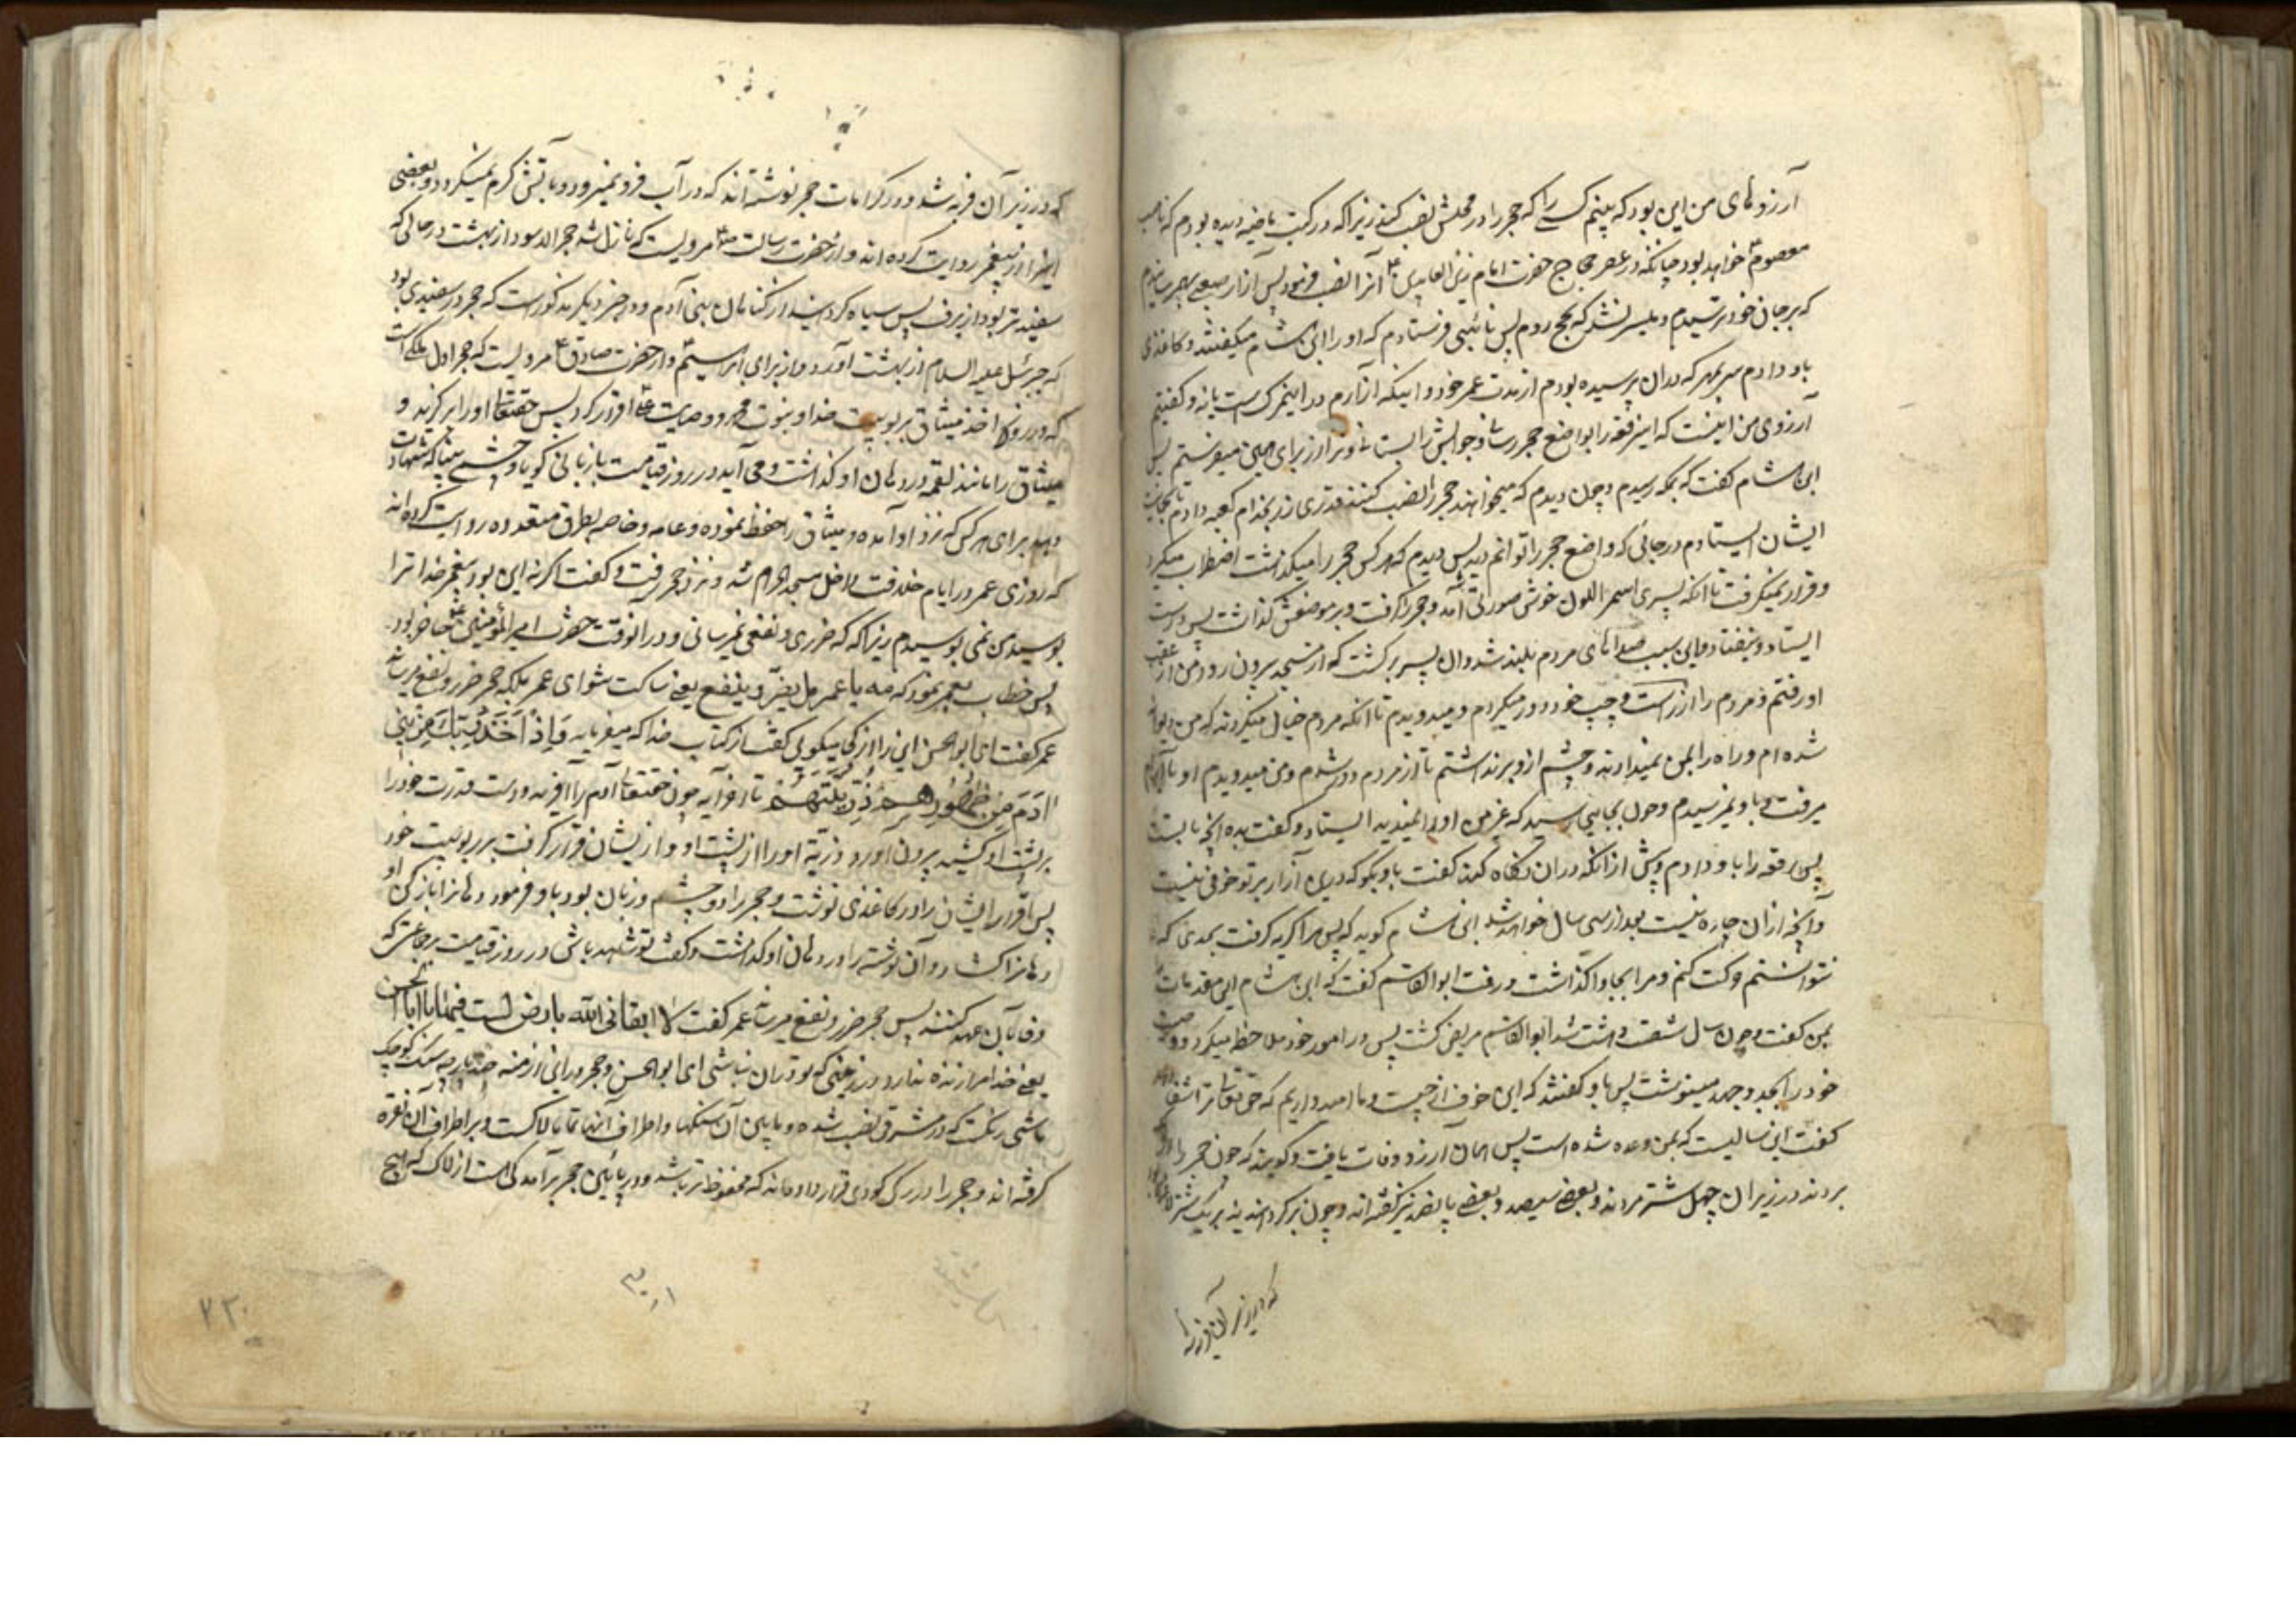 آرزوهای من این بود که ببینم کسی را که حجر را در محلش نصب کند زیرا که در کتب ماضیه دیده بودم که ناصب
معصوم خواهد بود چنانکه در عصر حجاج حضرت امام زین العابدین ع آنرا نصب فرمود پس آزار صعبی بهم رسانیدم
که بر جان خود ترسیدم و میسر نشد که بحج روم پس نائبی فرستادم که او را ابن هشام میگفتند و کاغذی
باو دادم سر بمهر که دران پرسیده بودم از مدت عمر خود و اینکه آزارم در اینمرک است یا نه و گفتم
آرزوی من اینست که اینرقعه را بواضع حجر رسانی و جوابش را بستانی و ترا از برای همین میفرستم پس
ابن هشام گفت که بمکه رسیدم و چون دیدم که میخواهند حجر را نصب کنند قدری زر بخدام کعبه دادم تا بجانب
ایشان ایستادم در جائی که واضع حجر را توانم دید پس دیدم که هر کس حجر را میگذاشت اضطراب میکرد
و قرار نمیگرفت تا انکه پسری اسمر اللون خوش صورتی آمد و حجر را گرفت و بر موضعش گذاشت پس راست
ایستاد و نیفتاد و باین سبب صداهای مردم بلند شد و ان پسر برگشت که از مسجد بیرون رود و من از عقب
او رفتم و مردم را از راست و چپ خود دور میکردم و میدویدم تا انکه مردم خیال میکردند که من دیوانه
شده ام و راه را بمن نمیدادند و چشم از و برنداشتم تا از مردم دور شدم و من میدویدم و او بآرام
میرفت و باو نمیرسیدم و چون بجایی رسید که غیر من او را نمیدید ایستاد و گفت بده آنچه با تست
پس رقعه را باو دادم و پیش از انکه دران نگاه کند گفت باو بگو که درین آزار بر تو خوفی نیست
و آنچه از ان چاره نیست بعد از سی سال خواهد شد ابن هشام گوید که پس مرا گریه گرفت بحدی که
نتوانستم حرکت کنم و مرا بجا واگذاشت و رفت ابوالقاسم گفت که ابن هشام این مقدمات
بمن گفت و چون سال شصت و هشت شد ابوالقاسم مریض گشت پس در امور خود ملاحظه میکرد و وصیت
خود را بجد و جهد مینوشت پس باو گفتند که این خوف از چیست و ما امیدواریم که حق تعالی ترا شفا دهد
گفت این سالیست که بمن وعده شده است پس بهمان آزار وفات یافت و گویند که چون حجر را
بردند در زیر ان چهل شتر مردند و بعضی سیصد و بعضی پانصد نیز گفته اند و چون برگردانیدند بر یک شتر لاغر
که در زیر آن فربه شد
که در زیر آن فربه شد و در کرامات حجر نوشته اند که در آب فرو نمیرود و بآتش گرم نمیگردد و بعضی
اینرا از پیغمبر روایت کرده اند و از حضرت رسالت ص مرویست که نازل شد حجر الاسود از بهشت در حالی که
سفیدتر بود از برف پس سیاه گردانید از گناهان بنی آدم و در خبر دیگر مذکور است که حجر در سفیدی بود
که جبرئیل علیه السلام از بهشت آورد و از برای ابراهیم و از حضرت صادق ع مرویست که حجر اول ملکی است
که در روز اخذ میثاق بربوبیت خدا و نبوت محمد و وصایت علی اقرار کرد پس حقتعالی او را برگزید و
میثاق را مانند لقمه در دهان او گذاشت و می آید در روز قیامت با زبانی گویا و چشمی بینا که شهادت
دهد برای هر کس که نزد او آمده و میثاق را حفظ نموده و عامه و خاصه بطرق متعدده روایت کرده اند
که روزی عمر در ایام خلافت داخل مسجد الحرام شد و نزد حجر رفت و گفت اگر نه این بود که پیغمبر خدا ترا
بوسیدی نمی بوسیدم زیرا که که ضرری و نفعی نمیرسانی و در آنوقت حضرت امیر المؤمنین ع حاضر بود
پس خطاب بعمر نمود که مه یا عمر بل یضر و ینفع یعنی ساکت شو ای عمر بلکه حجر ضرر و نفع میرساند
عمر گفت ای ابوالحسن این را از کجا میگویی گفت از کتاب خدا که میفرماید وَاِذْ اَخَذَ رَبُّكَ مِنْ بَنِي
آدَمَ مِنْ ظُهُورِهِمْ ذُرِّيَّتَهُمْ تا آخر آیه چون حقتعالی آدم را آفرید و دست قدرت خود را
بر پشت او کشید بیرون آورد ذریّة او را از پشت او و از ایشان اقرار گرفت بر ربوبیت خود
پس اقرار ایشان را در کاغذی نوشت و حجر را دو چشم و زبان بود باو فرمود دهانرا باز کن او
دهانرا گشاد و آن نوشته را در دهان او گذاشت و گفت تو شهید باشی در روز قیامت بر جماعتی که
وفا بآن عهد کنند پس حجر ضرر و نفع میرساند عمر گفت لا ابقانی الله بارض لست فیها یا ابا الحسن
یعنی خدا مرا زنده ندارد در زمینی که تو دران نباشی ای ابوالحسن و حجر در این ازمنه چند پارچه سنگ کوچک
ماشی رنگست که در مشرق نصب شده و مابین آن سنگها و اطراف آنها تمام لاکست و بر اطراف آن نقره
گرفته اند و حجر را در رکن گودی قرار داده اند که محفوظ تر باشد و در پائین حجر برآمدگی است از لاک که هیچ
۷۳